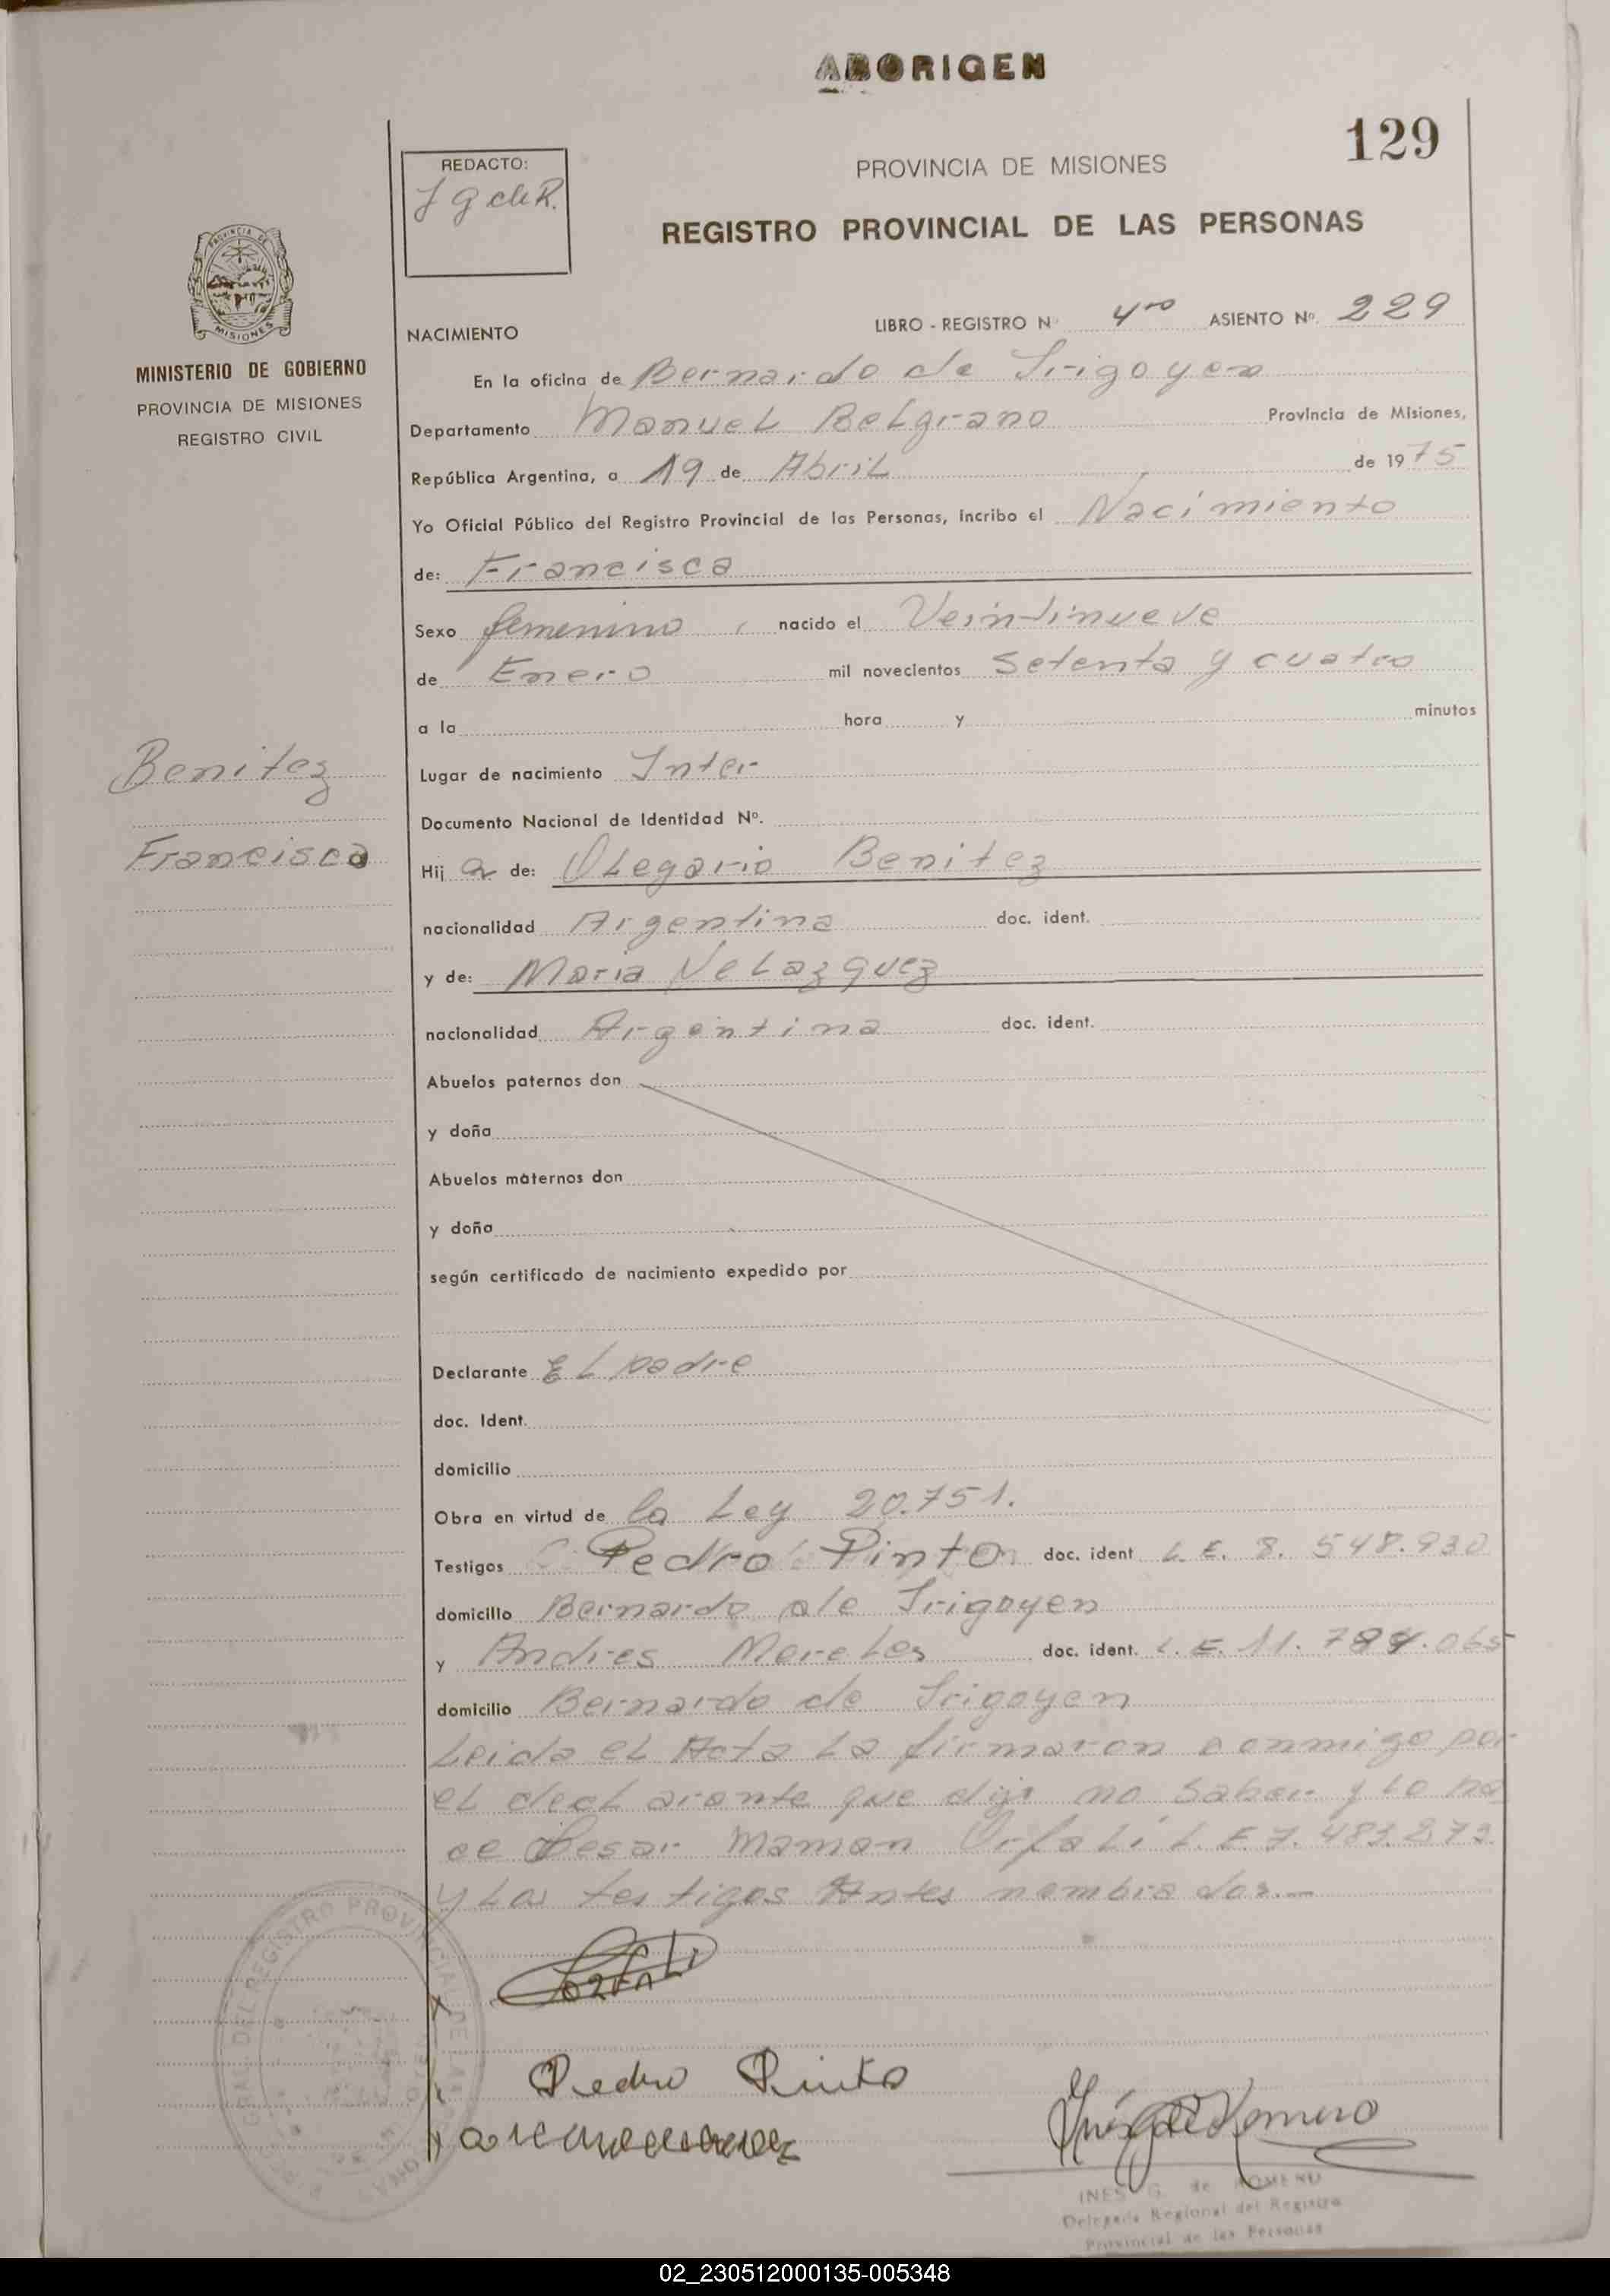 ABORIGEN
129
REDACTO:
J G de R.
PROVINCIA DE MISIONES
REGISTRO PROVINCIAL DE LAS PERSONAS
PROVINCIA DE
MISIONES
MINISTERIO DE GOBIERNO
PROVINCIA DE MISIONES
REGISTRO CIVIL
NACIMIENTO LIBRO - REGISTRO Nº 4ro ASIENTO Nº. 229
En la oficina de Bernardo de Irigoyen
Departamento Manuel Belgrano Provincia de Misiones,
República Argentina, a 19 de Abril de 1975
Yo Oficial Público del Registro Provincial de las Personas, incribo el Nacimiento
de: Francisca
Sexo femenino, nacido el Veintinueve
de Enero mil novecientos setenta y cuatro
a la hora y minutos
Benitez
Francisca
Lugar de nacimiento Inter
Documento Nacional de Identidad Nº.
Hij a de: Olegario Benitez
nacionalidad Argentina doc. ident.
y de: Maria Velazquez
nacionalidad Argentina doc. ident.
Abuelos paternos don
y doña
Abuelos maternos don
y doña
según certificado de nacimiento expedido por
Declarante El padre
doc. Ident.
domicilio
Obra en virtud de la Ley 20.751.
Testigos Pedro Pinto doc. ident L.E. 8.548.930
domicilio Bernardo de Irigoyen
y Andres Moreles doc. ident. L.E. 11.
domicilio Bernardo de Irigoyen
Leida el Acta La firmaron conmigo por
el declarante que dijo no saber y lo ha
ce Cesar Maman Orfali L.E 7.483.273
y Los testigos Antes nombrados.—
Pedro Pinto
Inés G de Romero
INES G. de ROMERO
Delegada Regional del Registro
Provincial de las Personas
GRAL. DEL REGISTRO PROVINCIAL DE LAS
02_230512000135-005348